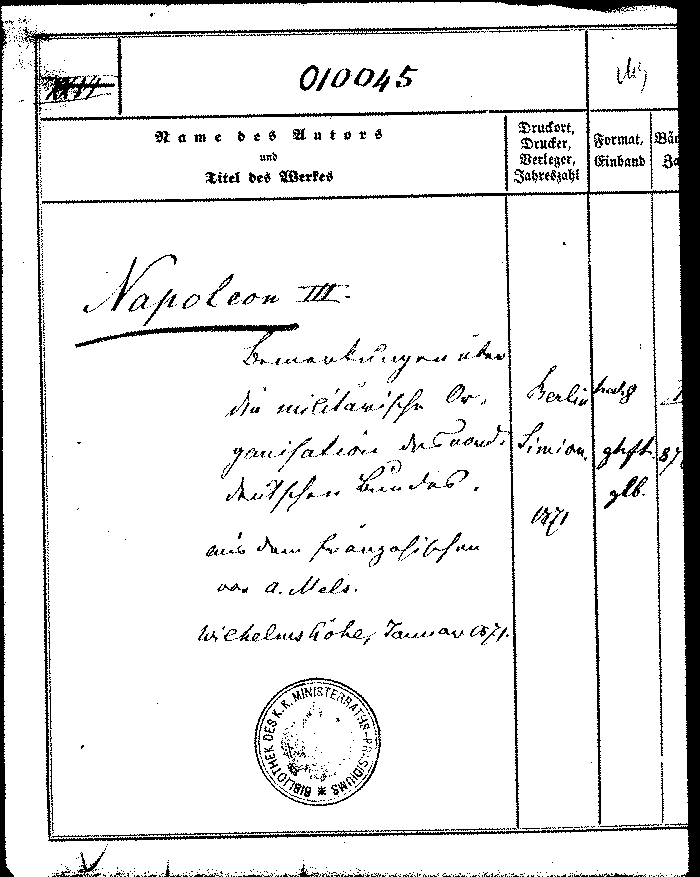 010045
Name des Autors
und
Titel des Werkes
Druckort,
Drucker,
Verleger,
Jahreszahl
Format,
Einband
Bän
Ja
Napoleon III.
Bemerkungen über
die militärische Or-
ganisation des nord-
deutschen Bundes.
aus dem Französischen
von A. Mels.
Wilhelmshöhe, Januar 1871.
Berlin
Simion.
1871
geheft.
glb.
87
BIBLIOTHEK DES K.K. MINISTERRATHS-PRÄSIDIUMS